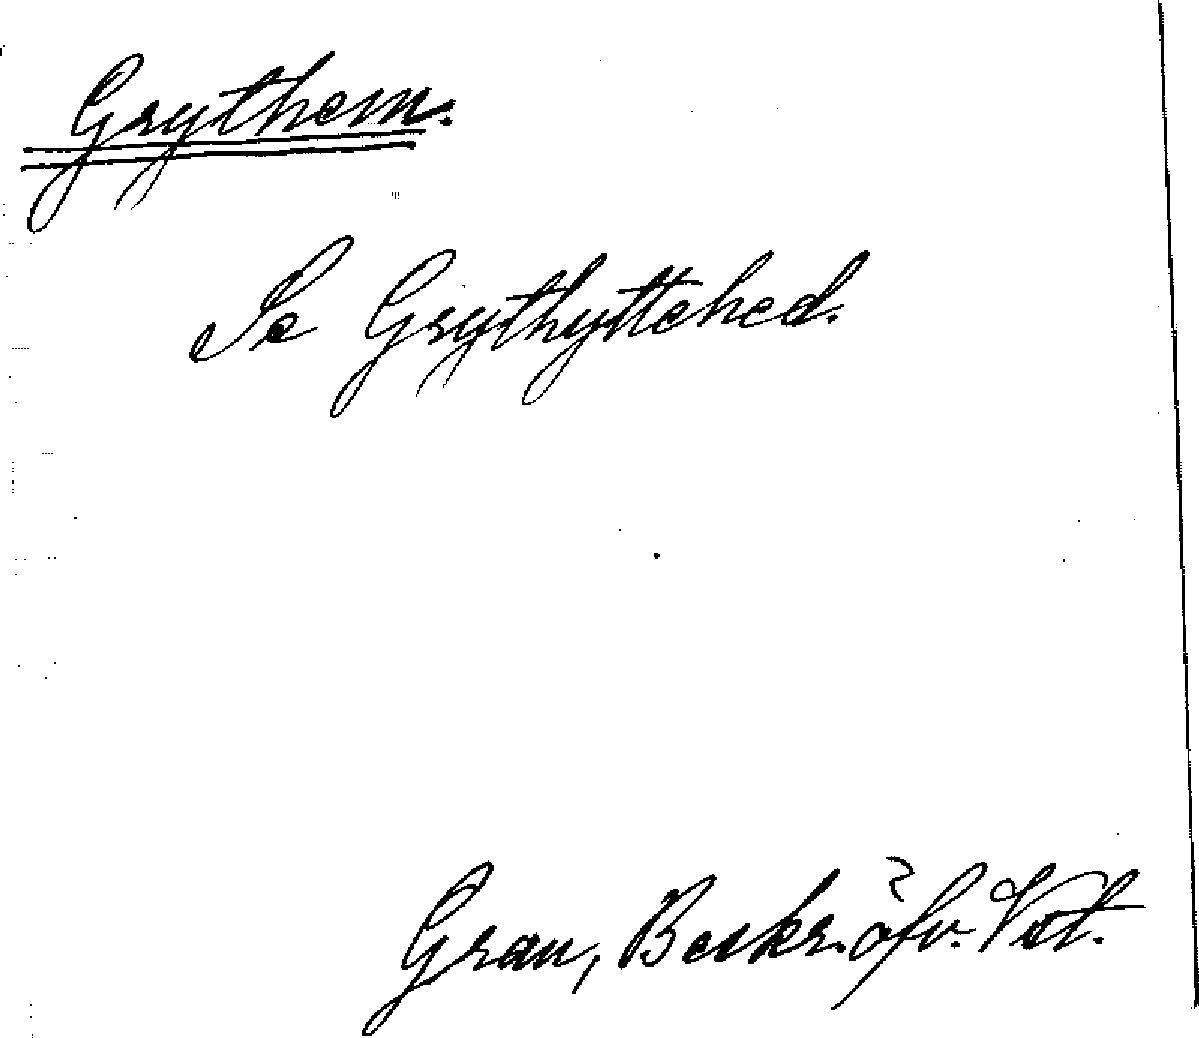 Grythem.
Se Grythyttehed.
Grau, Beskr. öfv. Vst.